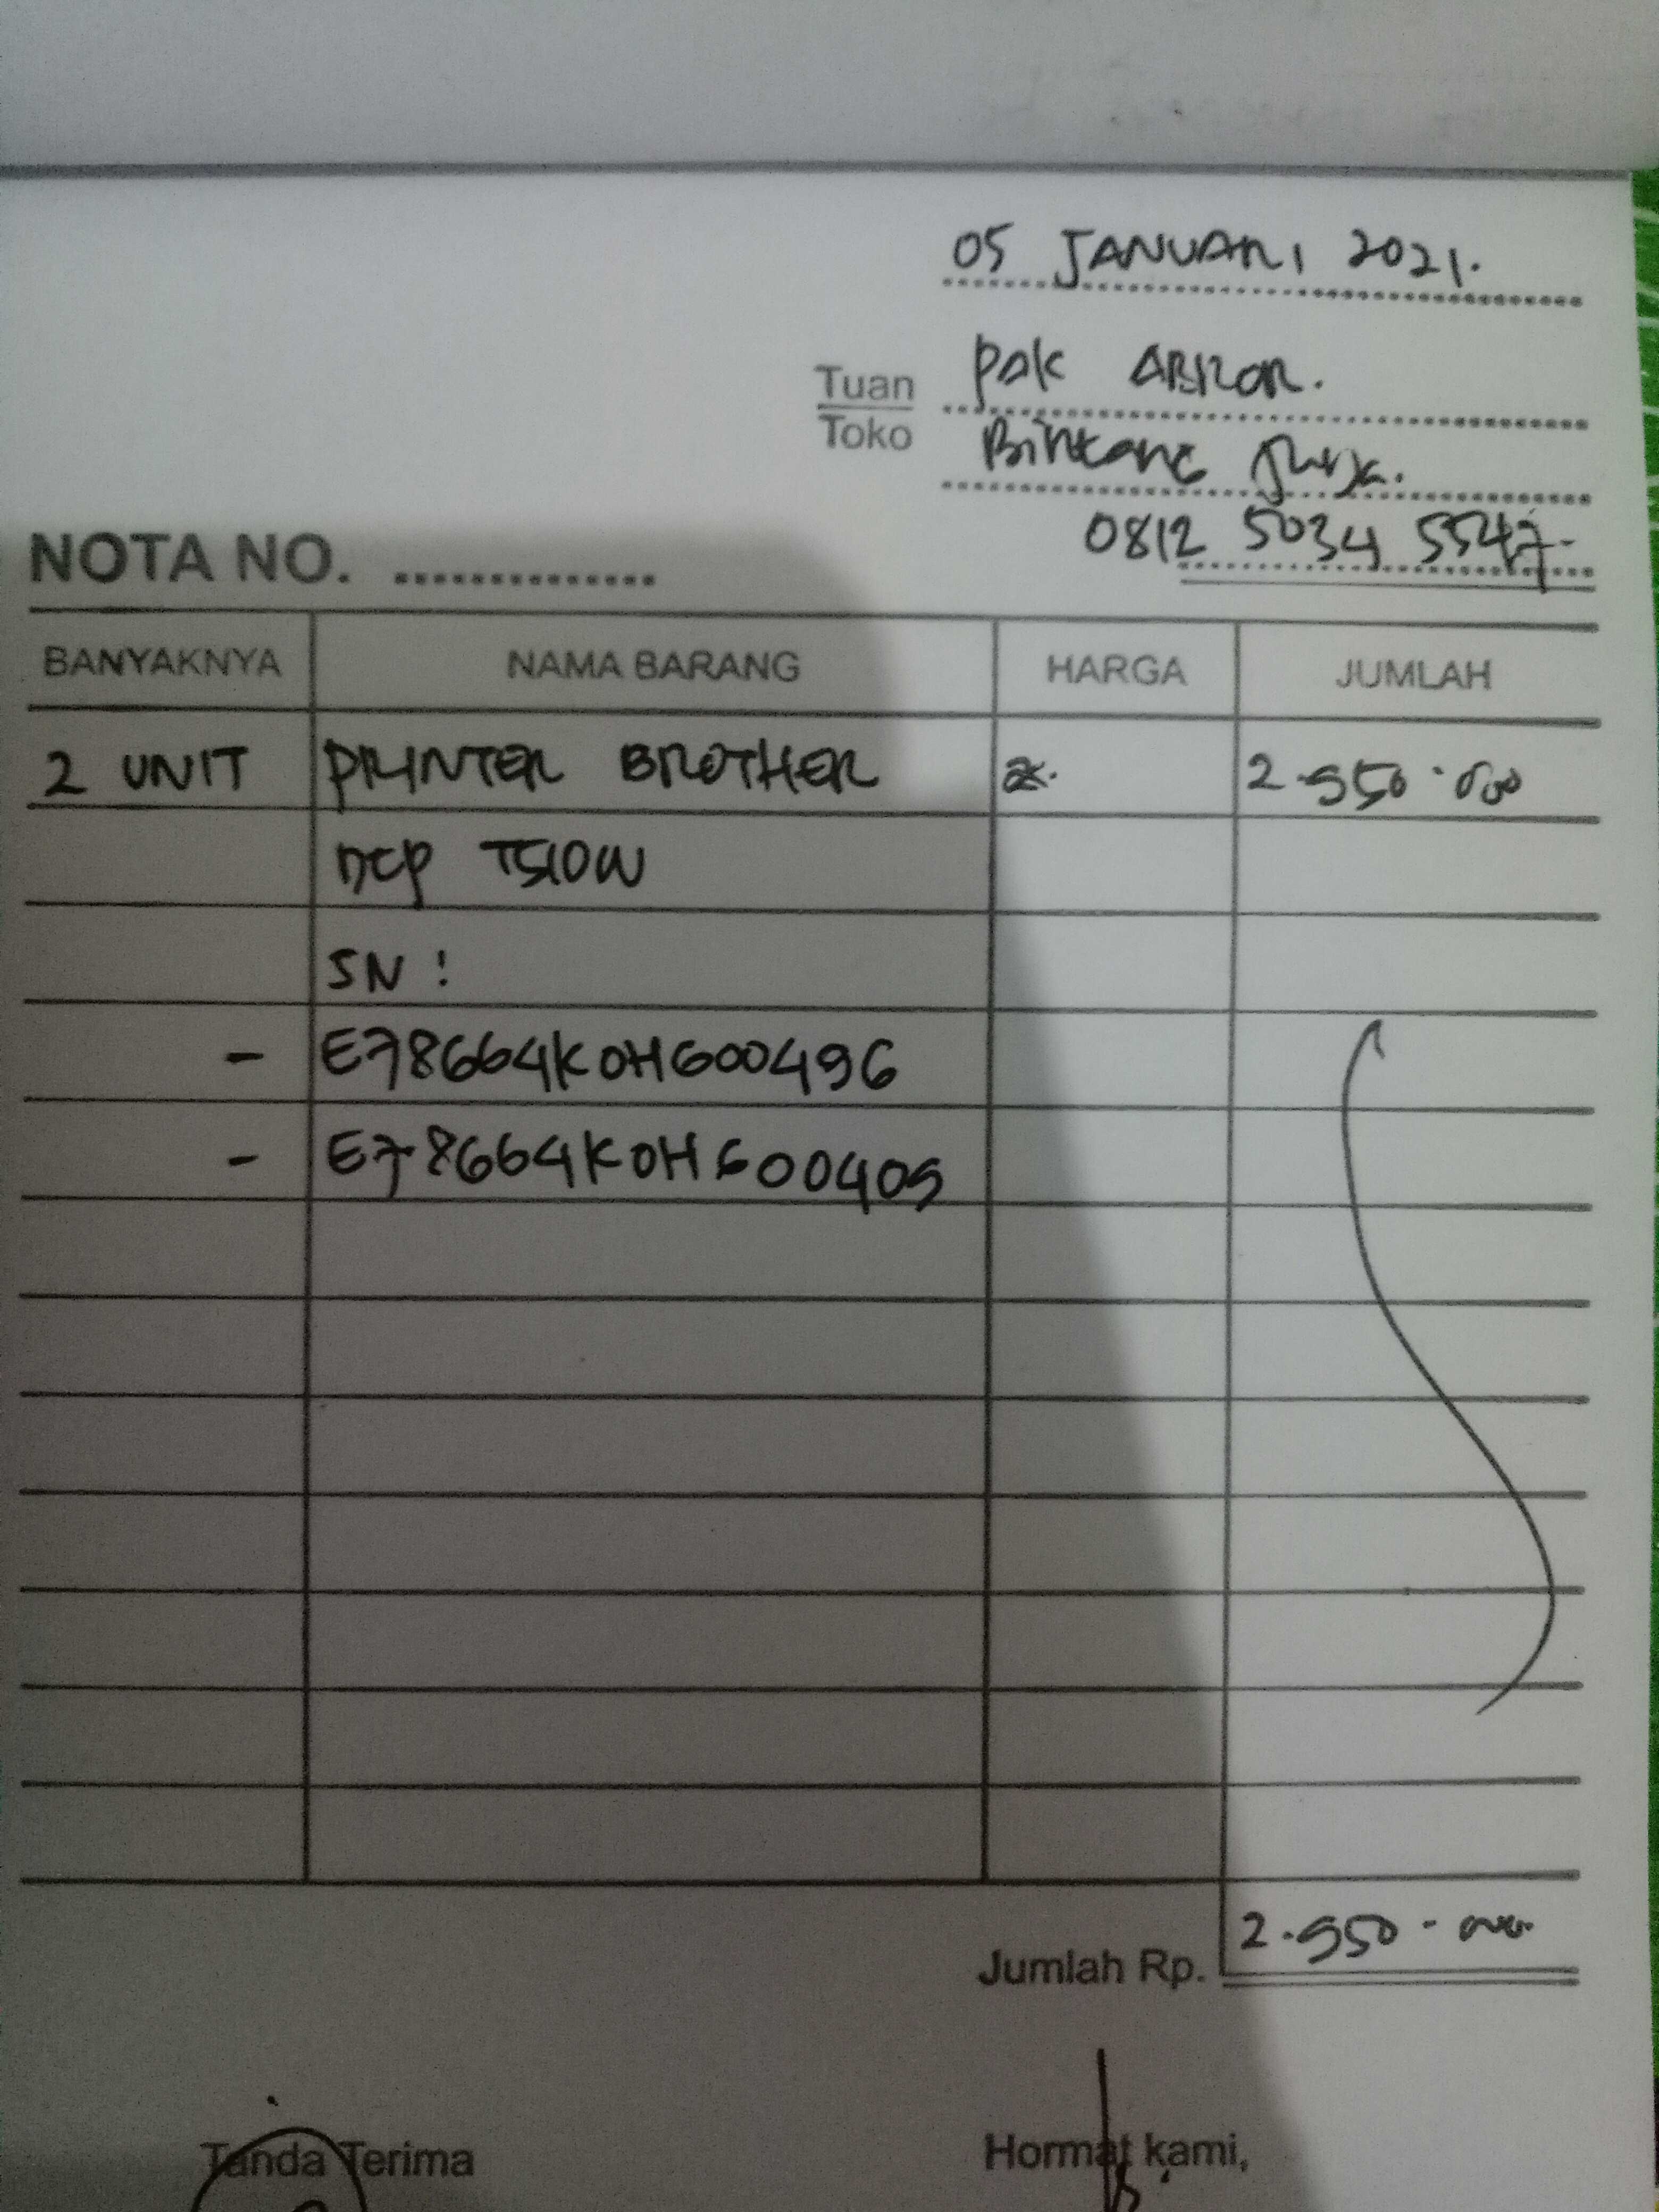 05 JANUARI 2021.
Tuan PAK ABROR.
Toko Bintang Jaya.
0812 5034 5547
NOTA NO. ..............
BANYAKNYA NAMA BARANG HARGA JUMLAH
2 UNIT PRINTER BROTHER 2.950.000
DCP T510W
SN :
- E78664K0H600496
- E78664K0H600409
Jumlah Rp. 2.950.000
Tanda Terima Hormat kami,